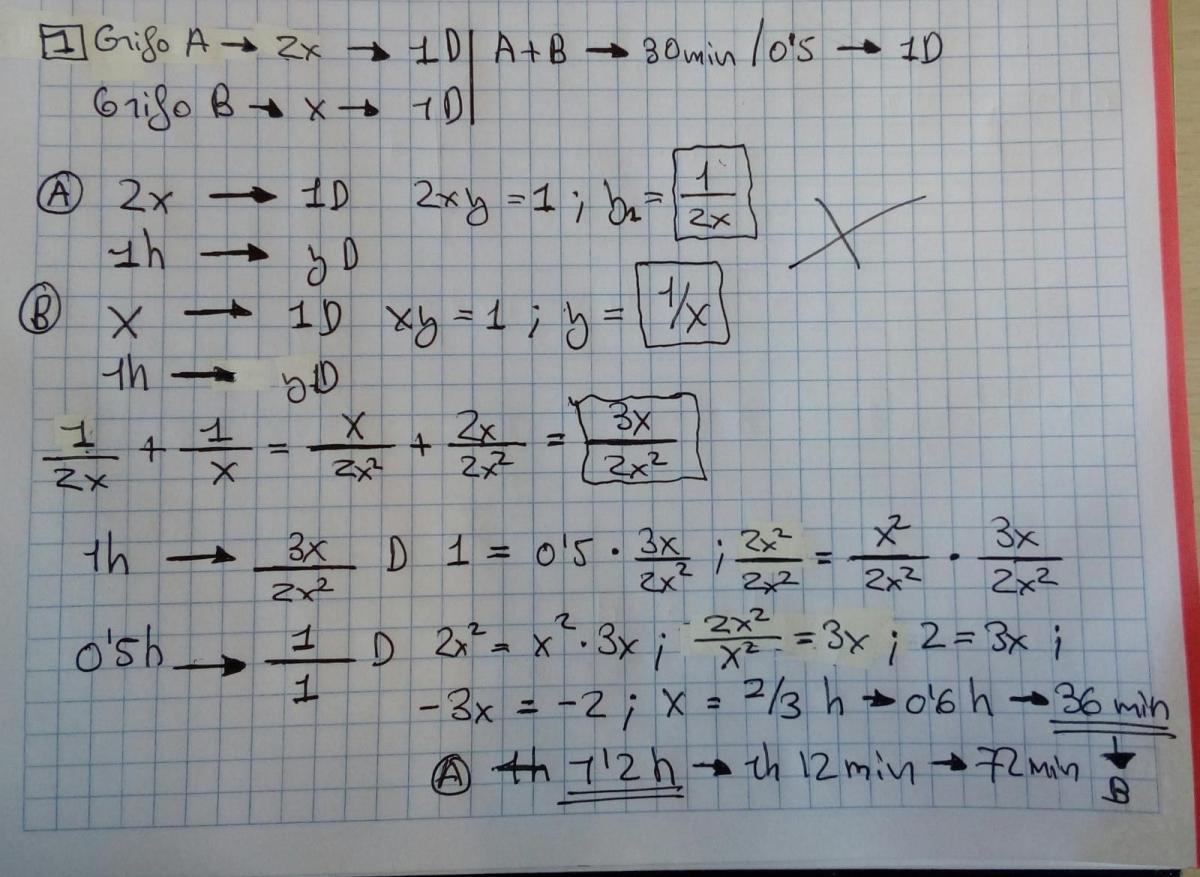 1 Grifo A → 2x → 1D | A+B → 30min / 0'5 → 1D
Grifo B → x → 1D
A 2x → 1D 2xy = 1 ; y₁ = 1/2x
1h → yD
B x → 1D xy = 1 ; y = 1/x
1h → yD
1/2x + 1/x = x/2x² + 2x/2x² = 3x/2x²
1h → 3x/2x² D 1 = 0'5 · 3x/2x² ; 2x²/2x² = x²/2x² · 3x/2x²
0'5h → 1/1 D 2x² = x² · 3x ; 2x²/x² = 3x ; 2 = 3x ;
-3x = -2 ; x = 2/3 h → 0'6 h → 36 min
A 1h 1'2 h → 1h 12 min → 72 min ↓ B